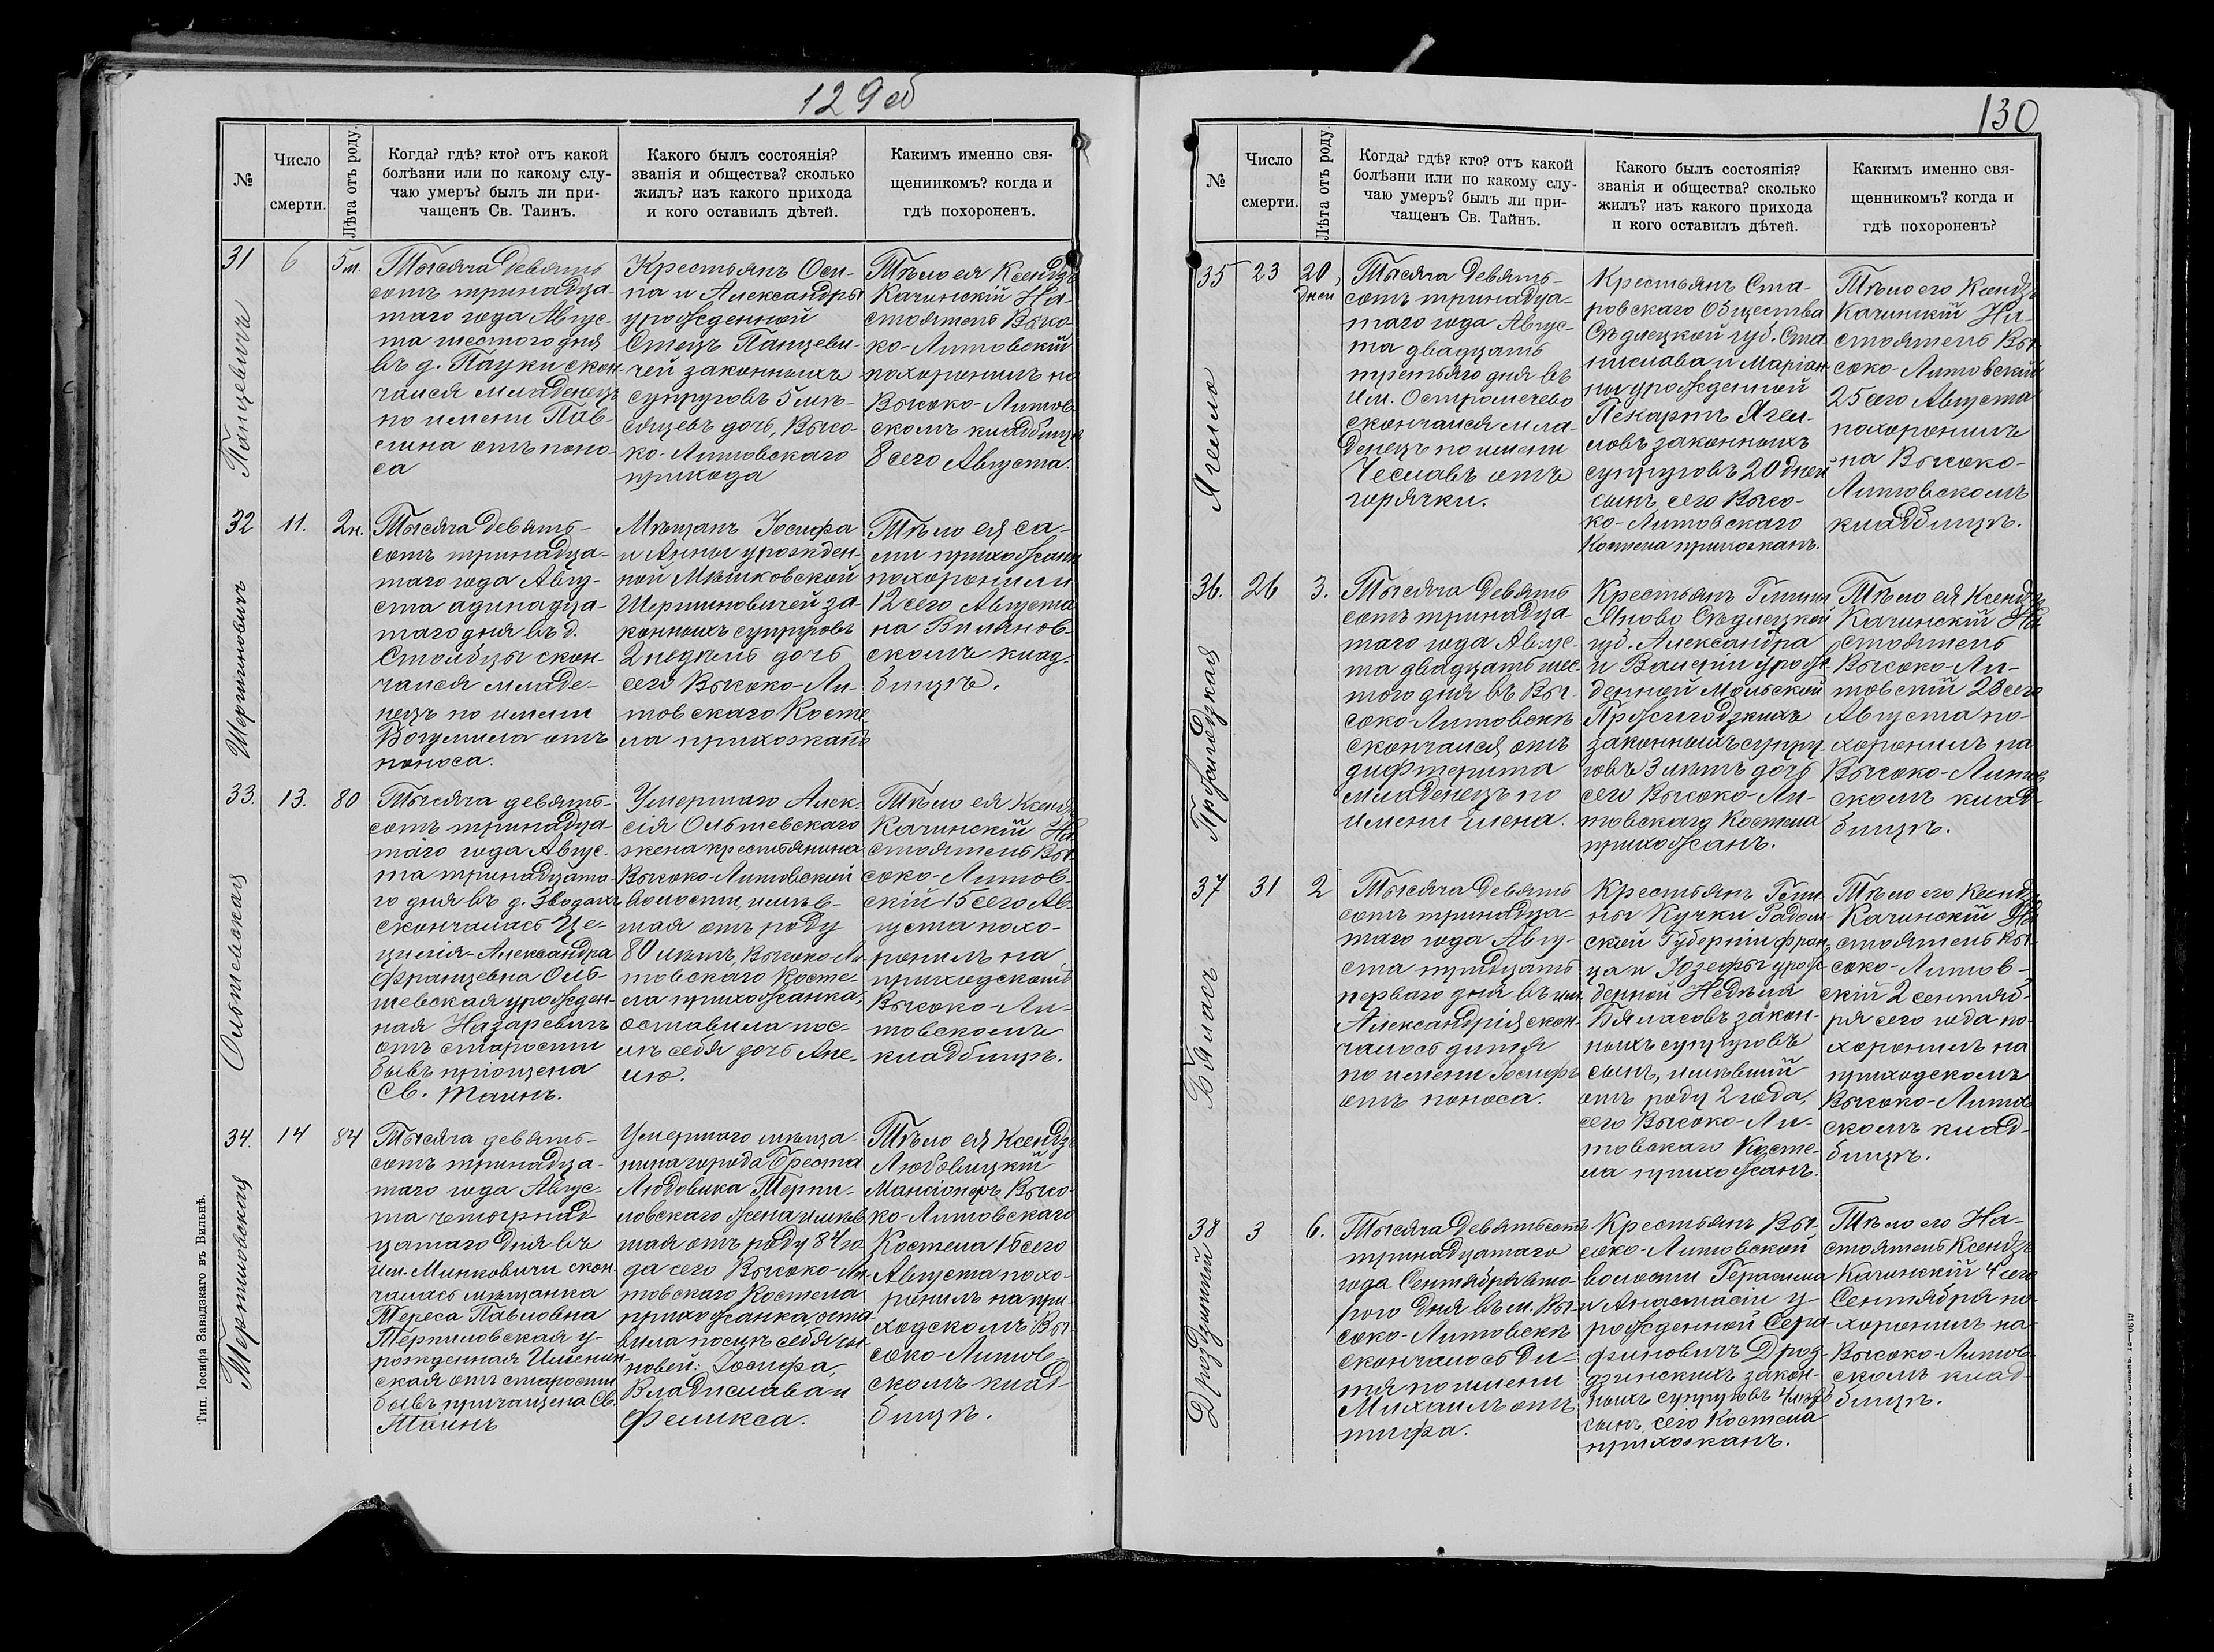 129об
№
Число
смерти.
Лѣта отъ роду.
Когда? гдѣ? кто? отъ какой
болѣзни или по какому слу-
чаю умеръ? былъ ли при-
чащенъ Св. Таинъ.
Какого былъ состоянія?
званія и общества? сколько
жилъ? изъ какого прихода
и кого оставилъ дѣтей.
Какимъ именно свя-
щенникомъ? когда и
гдѣ похороненъ.
31
6
5 м.
Панцевичъ
Тысяча девять
сотъ тринадца-
таго года Авгус-
та шестого дня
въ д. Пауки скон-
чался младенецъ
по имени Пав-
лина отъ поно-
са
Крестьянъ Оси-
па и Александры
урожденной
Стецъ Панцеви-
чей законныхъ
супруговъ 5 мѣ-
сяцевъ дочь, Высо-
ко-Литовскаго
прихода
Тѣло ея Ксендзъ
Качинскій На-
стоятель Высо-
ко-Литовскій
похоронилъ на
Высоко-Литов-
скомъ кладбищѣ
8 сего Августа.
32
11.
2 н.
Шершиновичъ
Тысяча девять-
сотъ тринадца-
таго года Авгу-
ста адинадца-
таго дня въ д.
Столбцы скон-
чался младе-
нецъ по имени
Богумила отъ
поноса.
Мѣщанъ Іосифа
и Анны урожден-
ной Мѣшковской
Шершиновичей за-
конныхъ супруговъ
2 недѣль дочь
сего Высоко-Ли-
товскаго Косте-
ла прихожанъ
Тѣло ея са-
ми прихожане
похоронили
12 сего Августа
на Вилянов-
скомъ клад-
бищѣ.
33.
13.
80
Ольшевская
Тысяча девять-
сотъ тринадца-
таго года Авгус-
та тринадцата-
го дня въ д. Зводахъ
скончалась Це-
цилія-Александра
Францевна Оль-
шевская урожден-
ная Назаревичъ
отъ старости
бывъ пріощена
Св. Таинъ.
Умершаго Алек-
сія Ольшевскаго
жена крестьянина
Высоко-Литовской
волости, имѣв-
шая отъ роду
80 лѣтъ, Высоко-Ли-
товскаго Косте-
ла прихожанка,
оставила пос-
лѣ себя дочь Апе-
лю.
Тѣло ея Ксендзъ
Качинскій На-
стоятель Вы-
соко-Литов-
скій 15 сего Ав-
густа похо-
ронилъ на
приходскомъ
Высоко-Ли-
товскомъ
кладбищѣ.
34.
14
84
Терпиловская
Тысяча девять-
сотъ тринадца-
таго года Авгус-
та четырнад-
цатаго дня въ
им. Минковичи скон-
чалась мѣщанка
Тереса Павловна
Терпиловская у-
рожденная
ская отъ старости
бывъ причащена Св.
Таинъ
Умершаго мѣща-
нина города Бреста
Людовика Терпи-
ловскаго жена имѣв-
шая отъ роду 84 го-
да сего Высоко-Ли-
товскаго Костела
прихожанка, оста-
вила послѣ себя сы-
новей: Іосифа,
Владислава и
Феликса.
Тѣло ея Ксендзъ
Любовицкій
Мансіонеръ Высо-
ко-Литовскаго
Костела 16 сего
Августа похо-
ронилъ на при-
ходскомъ Вы-
соко-Литов-
скомъ клад-
бищѣ.
Тип. Іосифа Завадзкаго въ Вильнѣ.
130
№
Число
смерти.
Лѣта отъ роду.
Когда? гдѣ? кто? отъ какой
болѣзни или по какому слу-
чаю умеръ? былъ ли при-
чащенъ Св. Тайнъ.
Какого былъ состоянія?
званія и общества? сколько
жилъ? изъ какого прихода
и кого оставилъ дѣтей.
Какимъ именно свя-
щенникомъ? когда и
гдѣ похороненъ?
35
23
20
дней
Ягело
Тысяча девять-
сотъ тринадца-
таго года Авгус-
та двадцать
третьяго дня въ
им. Остромечево
скончался мла-
денецъ по имени
Чеславъ отъ
горячки.
Крестьянъ Ста-
ровскаго Общества
Сѣдлецкой губ. Ста-
нислава и Маріан-
ны урожденной
Пекартъ Ягел-
ловъ законныхъ
супруговъ 20 дней
сынъ сего Высо-
ко-Литовскаго
Костела прихожанъ.
Тѣло его Ксендзъ
Качинскій На-
стоятель Вы-
соко-Литовскій
25 сего Августа
похоронилъ
на Высоко-
Литовскомъ
кладбищѣ.
36.
26
3.
Пржигодзкая
Тысяча девять
сотъ тринадца-
таго года Авгус-
та двадцать шес-
того дня въ Вы-
соко-Литовскѣ
скончался отъ
дифтерита
младенецъ по
имени Елена.
Крестьянъ Гмины
Яново Сѣдлецкой
губ. Александра
и Валеріи урож-
денной Мольской
Пржигодзкихъ
законныхъ супру-
говъ 3 лѣтъ дочь
сего Высоко-Ли-
товскаго Костела
прихожанъ.
Тѣло ея Ксендзъ
Качинскій На-
стоятель
Высоко-Ли-
товскій 28 сего
Августа по-
хоронилъ на
Высоко-Литов-
скомъ клад-
бищѣ.
37
31
2
Бялясъ
Тысяча девять
сотъ тринадца-
таго года Авгу-
ста тридцать
перваго дня въ им.
Александрія скон-
чалось дитя
по имени Іосифъ
отъ поноса.
Крестьянъ Гми-
ны Кучки Радом-
ской Губерніи Фран-
ца и Іозефы урож-
денной Недѣля
Бялясовъ закон-
ныхъ супруговъ
сынъ, имѣвшій
отъ роду 2 года,
сего Высоко-Ли-
товскаго Косте-
ла прихожанъ.
Тѣло его Ксендзъ
Качинскій На-
стоятель Вы-
соко-Литов-
скій 2 сентяб-
ря сего года по-
хоронилъ на
приходскомъ
Высоко-Литов-
скомъ клад-
бищѣ.
38
3
6.
Дроздзинскій
Тысяча девятьсотъ
тринадцатаго
года Сентября вто-
рого дня въ м. Вы-
соко-Литовскѣ
скончалось ди-
тя по имени
Михаилъ отъ
тифа.
Крестьянъ Вы-
соко-Литовской
волости Герасима
и Анастасіи у-
рожденной Сера-
финовичъ Дроз-
дзинскихъ закон-
ныхъ супруговъ
сынъ, сего Костела
прихожанъ.
Тѣло его На-
стоятель Ксендзъ
Качинскій 4 сего
Сентября по-
хоронилъ на
Высоко-Литов-
скомъ клад-
бищѣ.